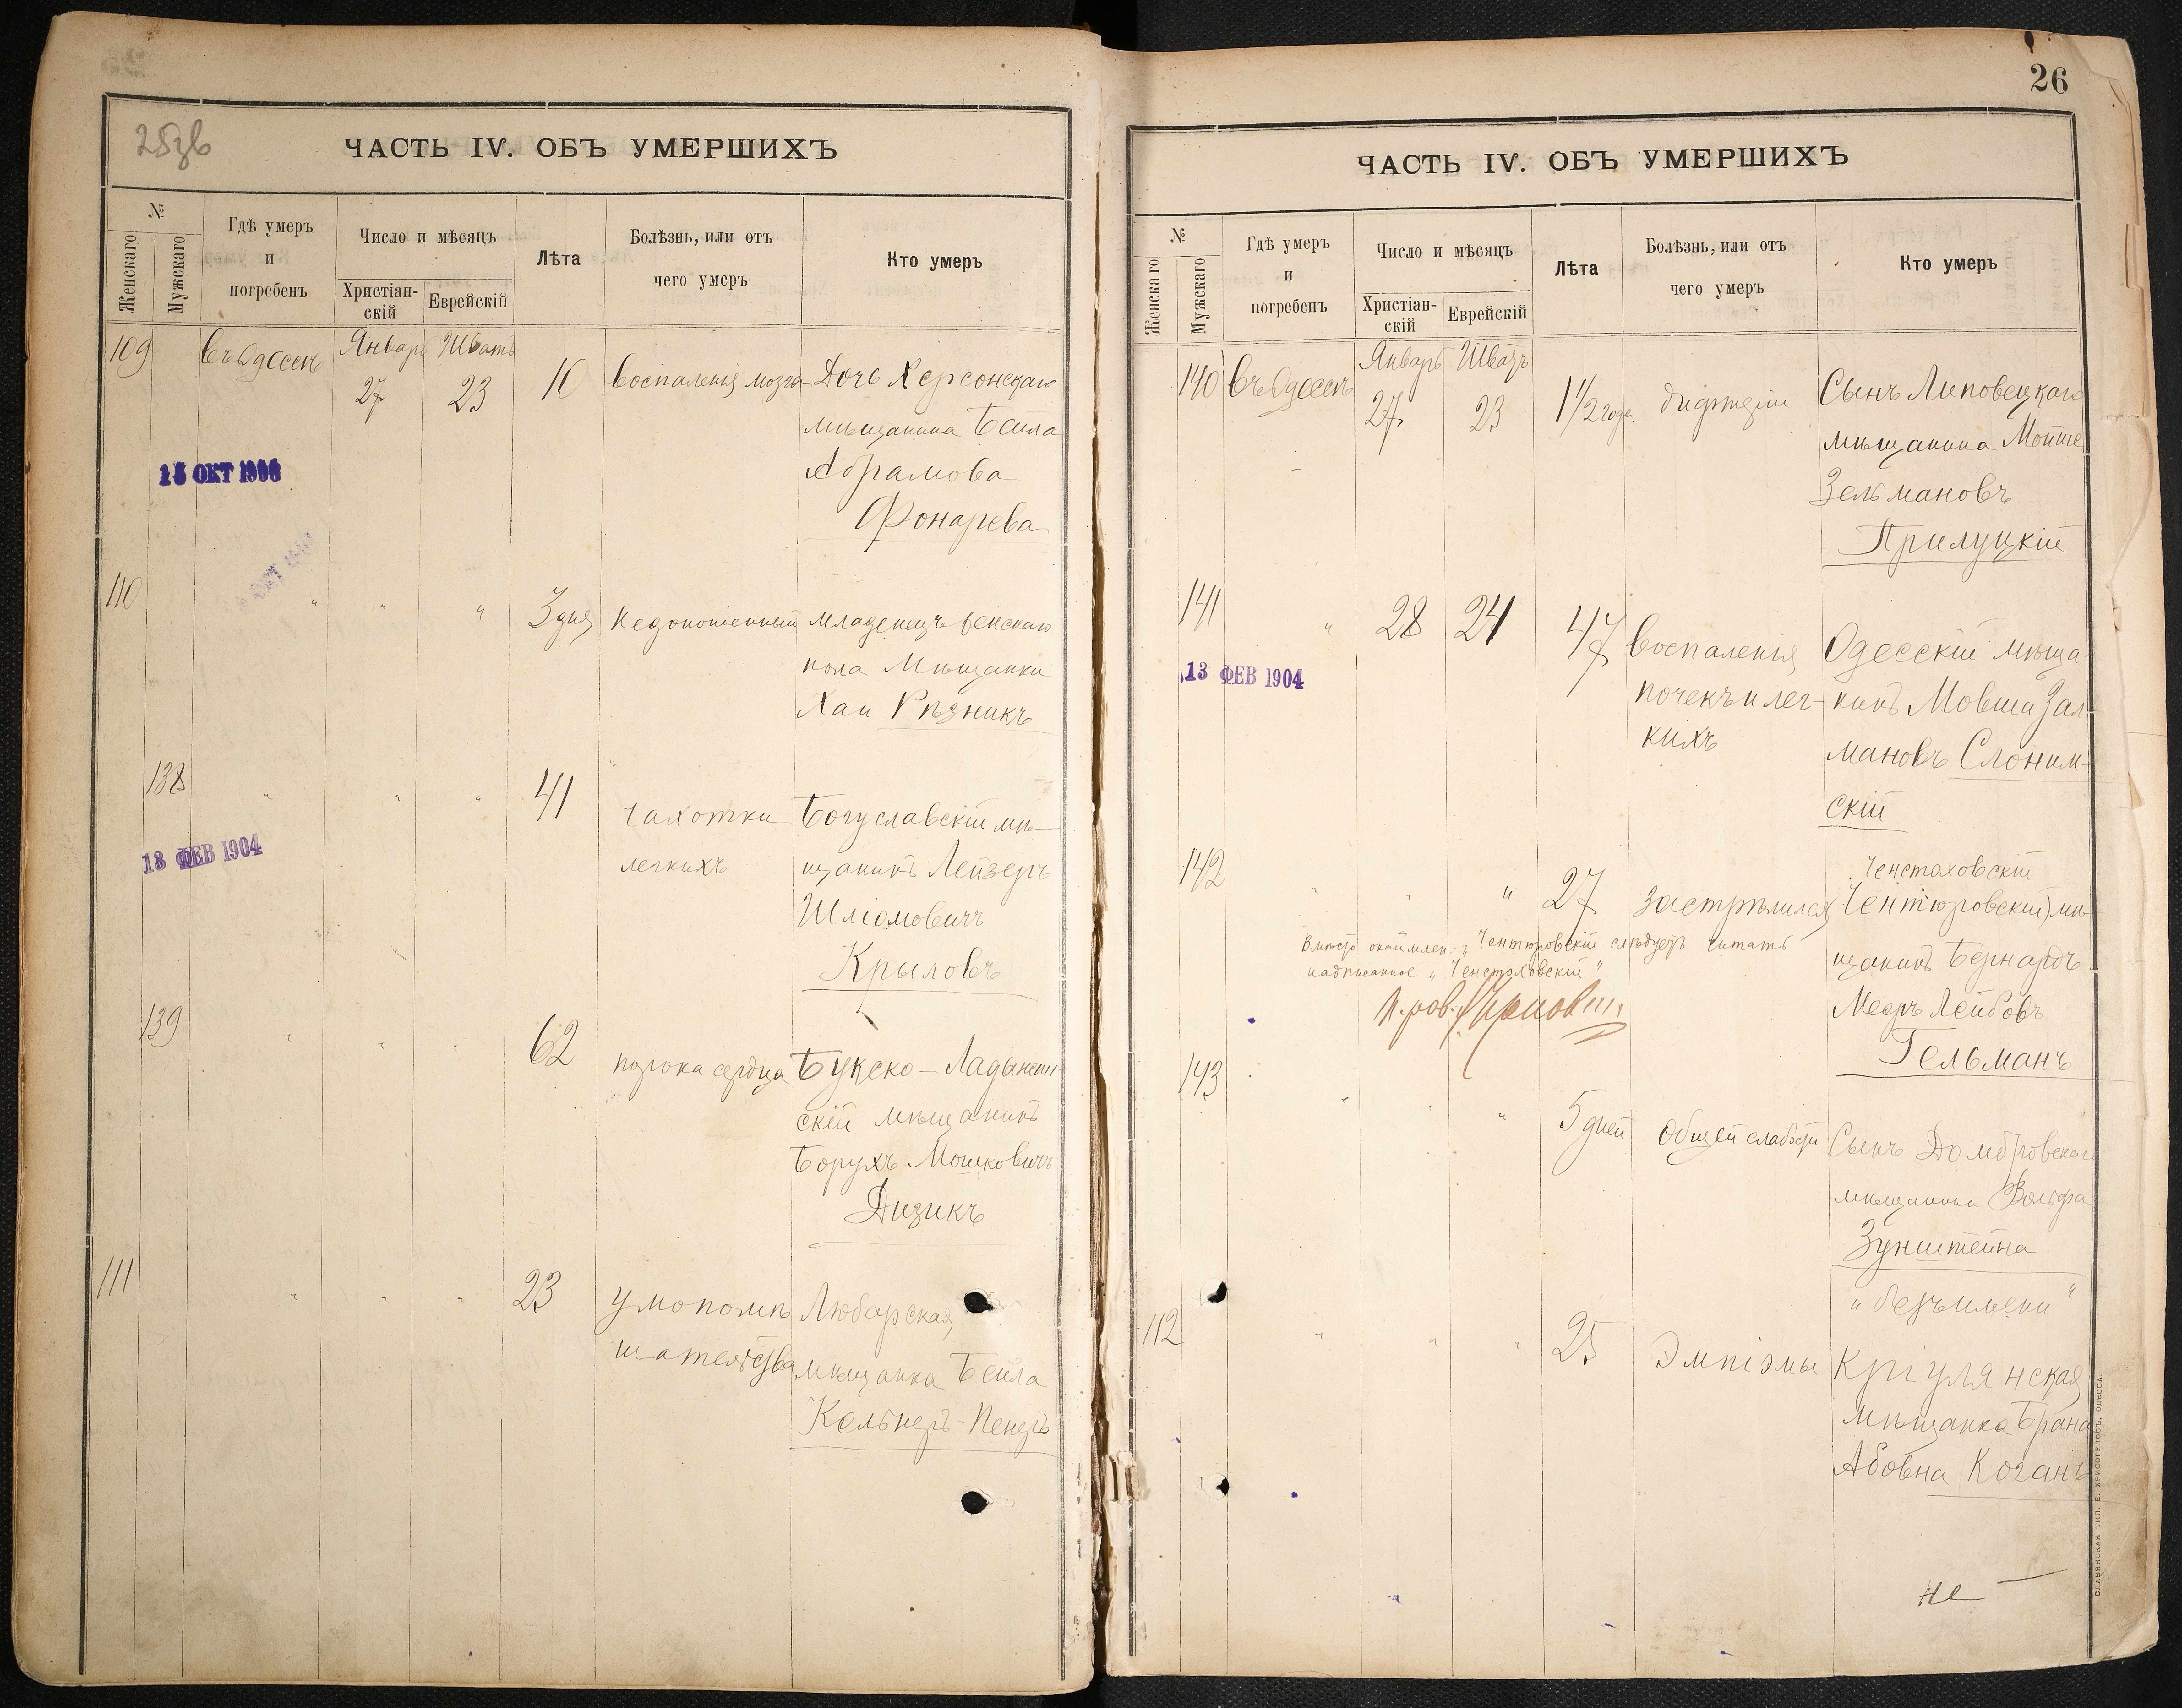 25зв
ЧАСТЬ IV. ОБЪ УМЕРШИХЪ
№
Женскаго
Мужскаго
Гдѣ умеръ
и
погребенъ
Число и мѣсяцъ
Христіан-
скій
Еврейскій
Лѣта
Болѣзнь, или отъ
чего умеръ
Кто умеръ
109 въ Одессѣ Январь Шватъ
27 23 10 воспаленія мозга Дочь Херсонскаго
мѣщанина Бейла
Абрамова
Фонарева
15 ОКТ 1906
110 " " " 3 дня недоношенный младенецъ женскаго
пола Мѣщанки
Хаи Рѣзникъ
138 " " " 41 чахотки Богуславскій мѣ-
легкихъ щанинъ Лейзеръ
Шліомовичъ
Крыловъ
13 ФЕВ 1904
139 " " " 62 порока сердца
скій мѣщанинъ
Борухъ Мошковичъ
Дизикъ
111 " " " 23 умопомѣ Любарская
шательства мѣщанка Бейла
Кельнеръ-
26
ЧАСТЬ IV. ОБЪ УМЕРШИХЪ
№
Женскаго
Мужскаго
Гдѣ умеръ
и
погребенъ
Число и мѣсяцъ
Христіан-
скій
Еврейскій
Лѣта
Болѣзнь, или отъ
чего умеръ
Кто умеръ
140 въ Одессѣ Январь Шватъ
27 23 1 1/2 года Сынъ Липовецкаго
мѣщанина Мойше
Зельмановъ
Прилуцкій
141 " 28 24 47 воспаленія Одесскій мѣща-
почекъ и лег- нинъ Мовша Зал-
кихъ мановъ Слоним-
скій
13 ФЕВ 1904
Ченстаховскій
142 " " " 27 застрѣлился Чентюровскій) мѣ-
щанинъ Бернардъ
Мееръ Лейбовъ
Гельманъ
Вмѣсто окаймлен. „Чентюровскій слѣдуетъ читать
надписанное „Ченстоховскій"
143 " " " 5 дней Общей слабости Сынъ Домбровскаго
мѣщанина Вольфа
Зунштейна
"безъ имени"
112 " " " 25 Эмпіэмы Кріулянская
мѣщанка Брана
Абовна Коганъ
не —
СЛАВЯНСКАЯ ТИП. Е. ХРИСОГЕЛОСЪ, ОДЕССА.